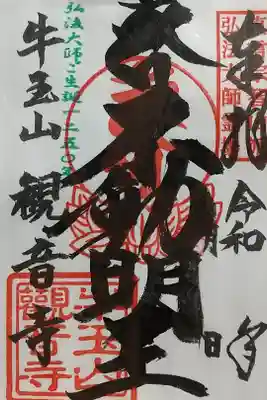 奉拝
令和 年
月 日
不動明王
弘法大師ご生誕一二五〇年
牛玉山
観音寺
牛玉山
觀音寺